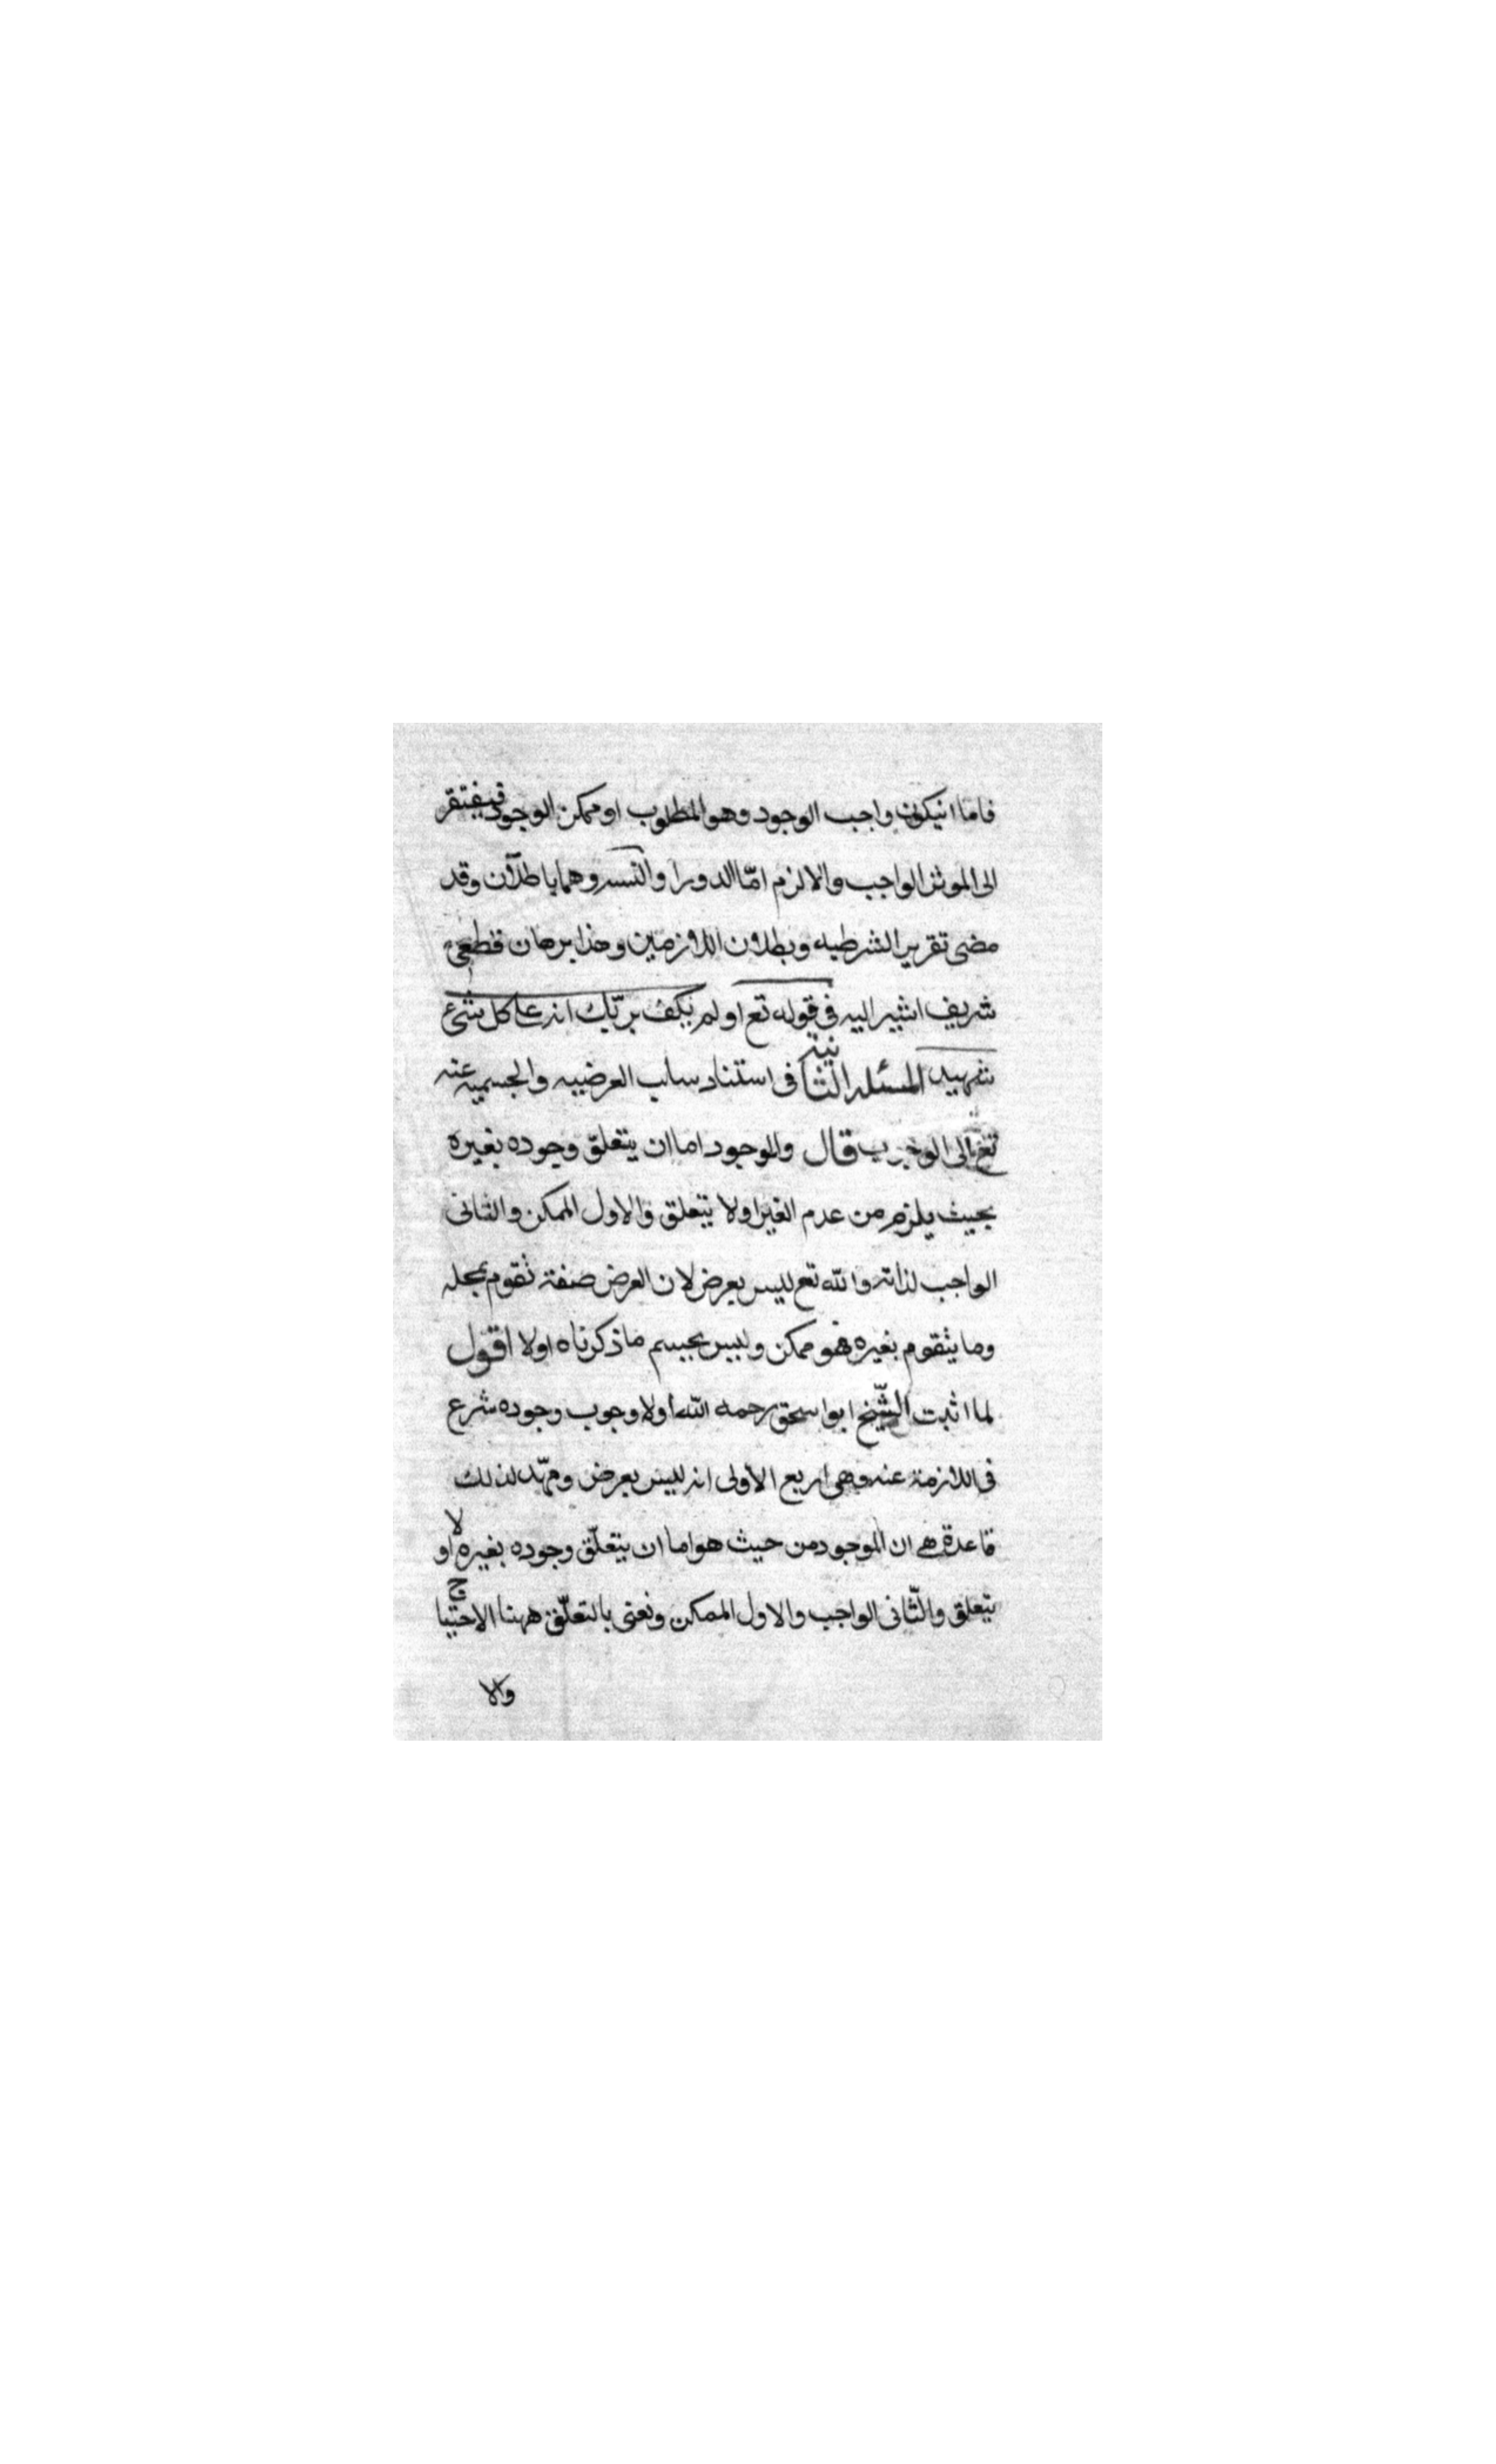 فاما انيكون واجب الوجود وهو المطلوب او ممكن الوجود فيفتقر
الى الموثر الواجب والا لزم امّا الدور او التسـ وهما باطلان وقد
مضى تقرير الشرطيه وبطلان اللازمين وهذا برهان قطعى
شريف اشير اليه فى قوله تع اولم يكف بربّك انه على كل شئ
شهيد المسئله الثانية فى استناد سلب العرضيه والجسميه عنه
تع الى الوجوب قال والموجود اما ان يتعلّق وجوده بغيره
بحيث يلزم من عدم الغير اولا يتعلق والاول الممكن والثانى
الواجب لذاته والله تع ليس بعرض لان العرض صفة تقوم بمحله
وما يتقوم بغيره فهو ممكن وليس بجسم ماذكرناه اولا اقول
لما اثبت الشّيخ ابواسحق رحمه الله اولا وجوب وجوده شرع
فى اللازمة عنه وهى اربع الاولى انه ليس بعرض ومهّد لذلك
قاعدة هى ان الموجود من حيث هو اما ان يتعلّق وجوده بغيره او لا
يتعلق والثّانى الواجب والاول الممكن ونعنى بالتعلّق ههنا الاحتياج
والا